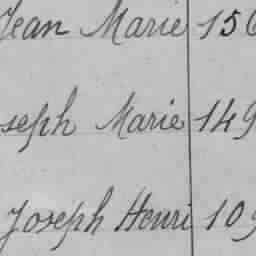 Jean Marie 156
seph Marie 149
Joseph Henri 109